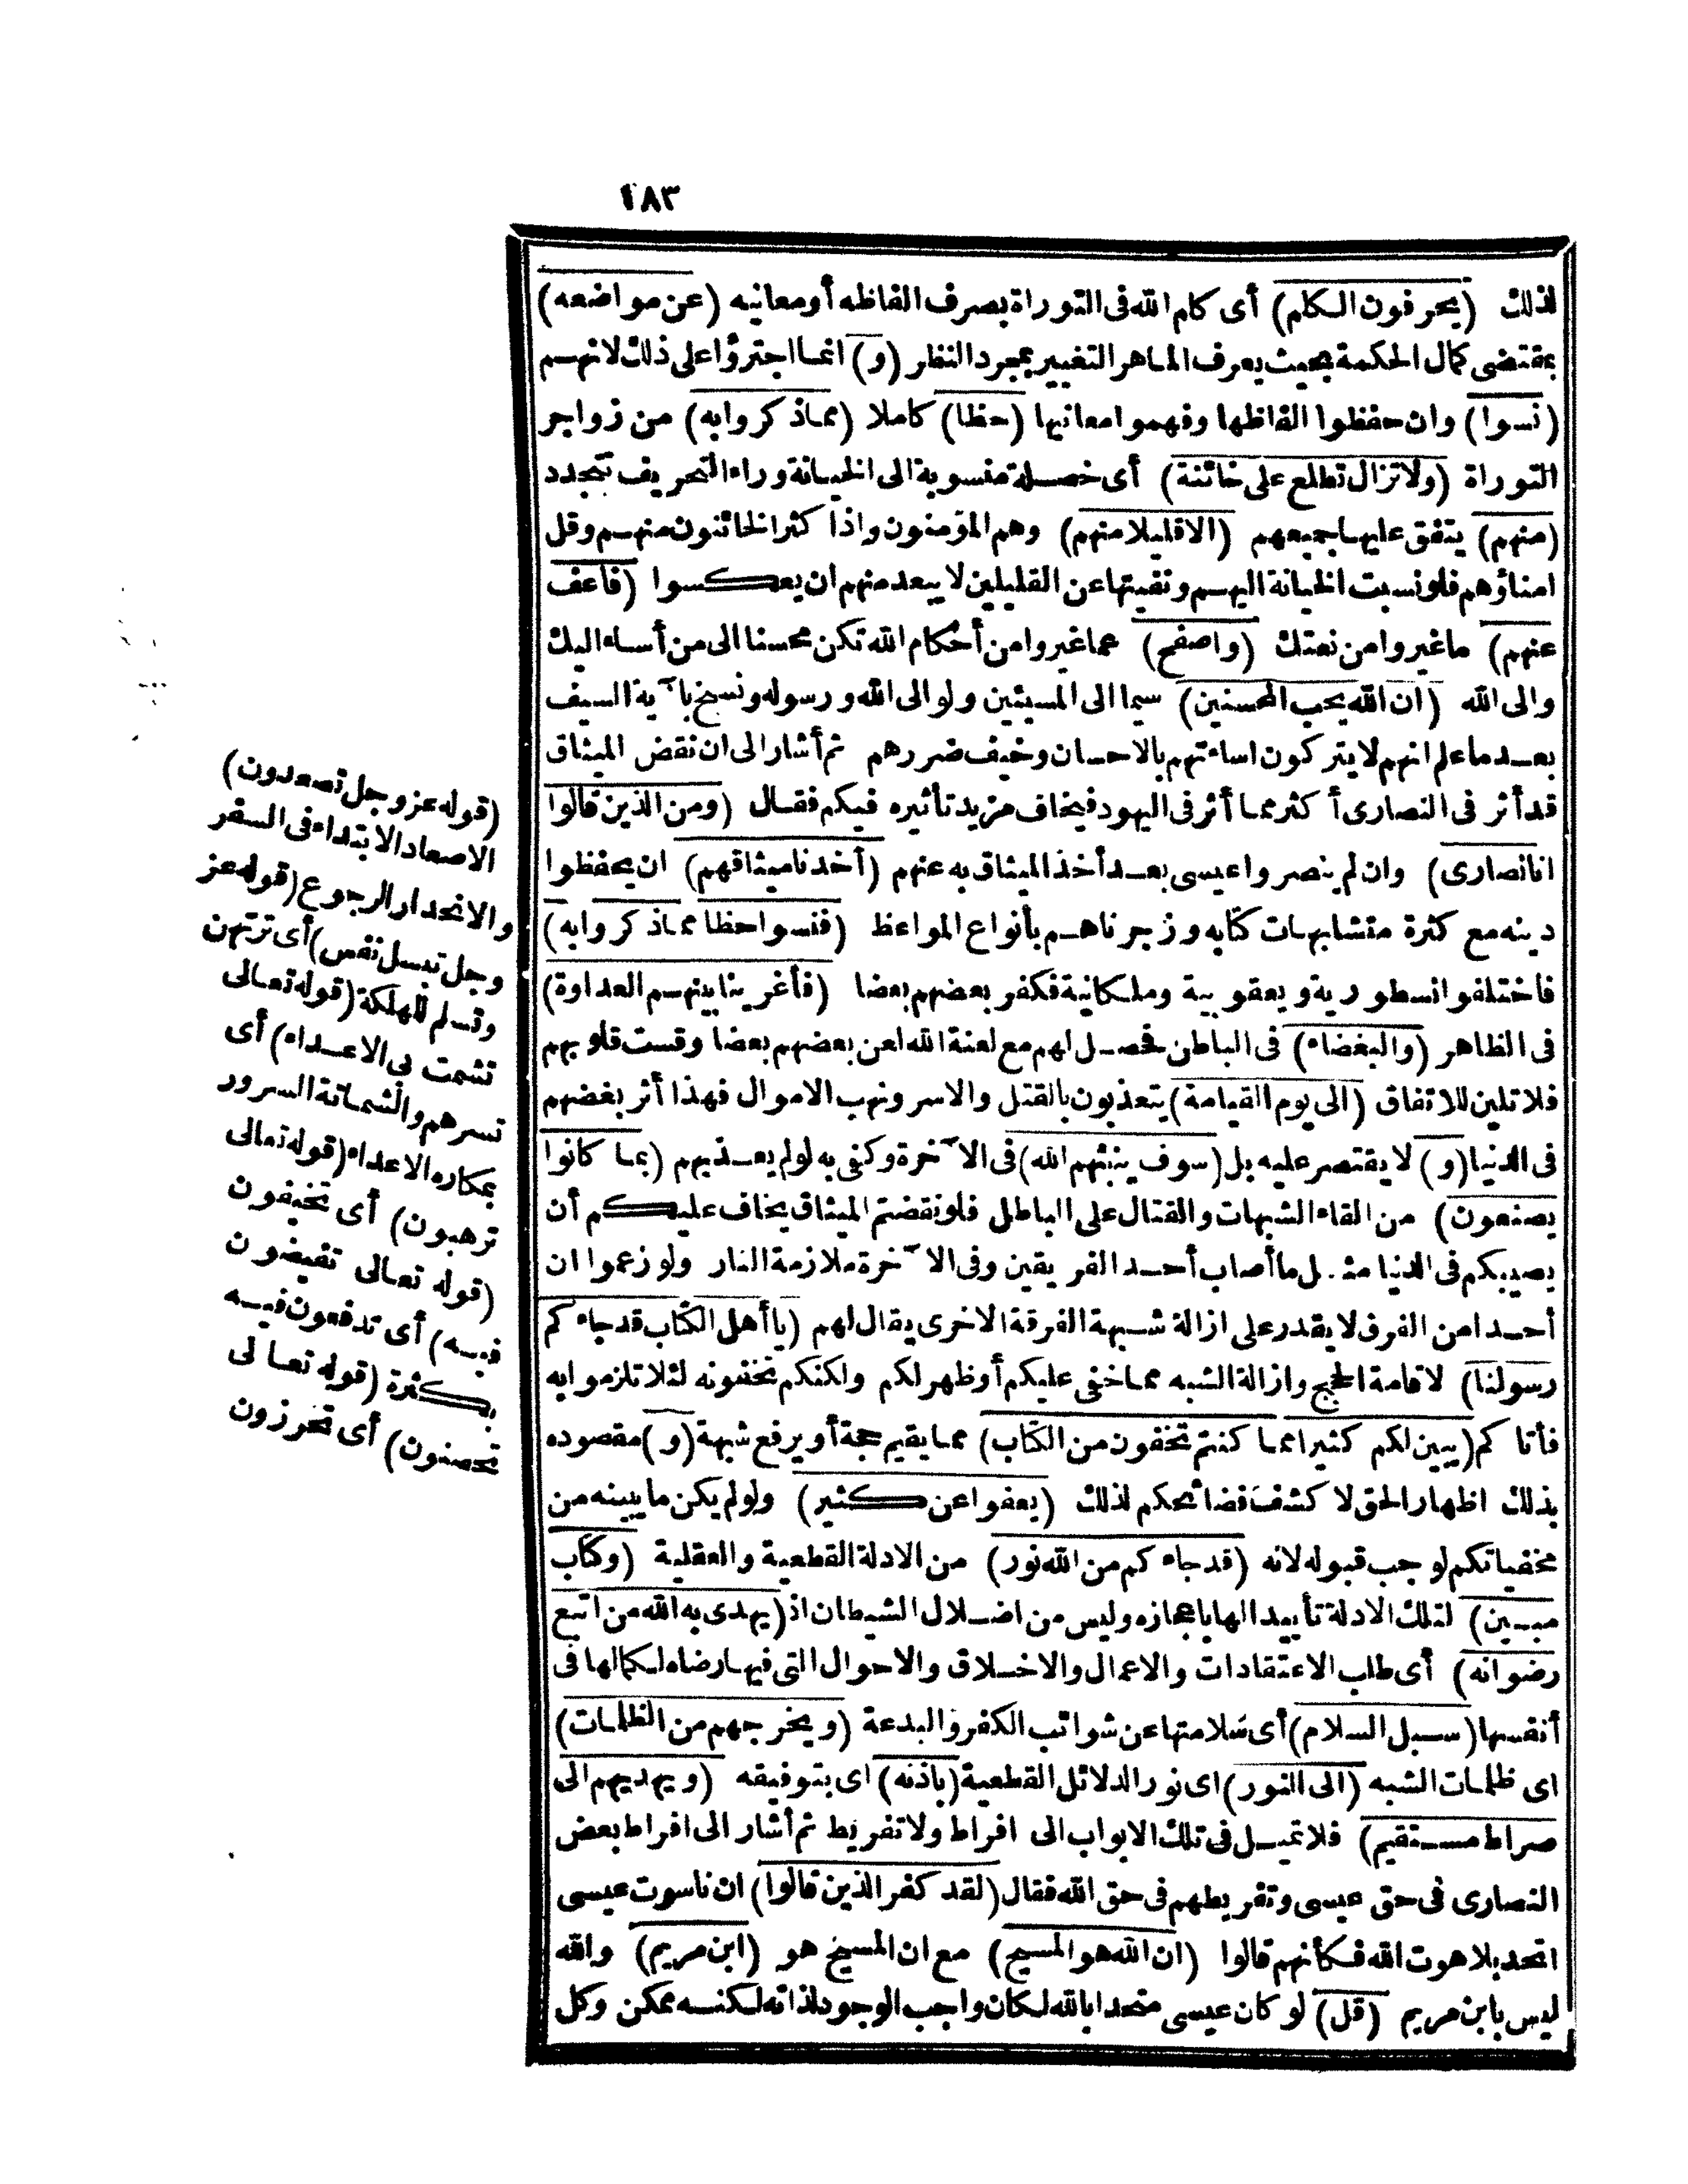 ١٨٣
لذلك (يحرفون الكلم) أى كلم الله فى التوراة بصرف الفاظه أو معانيه (عن مواضعه)
بمقتضى كمال الحكمة بحيث يعرف الماهر التغيير بمجرد النظر (و) انما اجترؤا على ذلك لانهم
(نسوا) وان حفظوا الفاظها وفهموا معانيها (حظا) كاملا (مماذكروابه) من زواجر
التوراة (ولاتزال تطلع على خائنة) أى خصلة منسوبة الى الخيانة وراء التحريف تتجدد
(منهم) يتفق عليها جميعهم (الاقليلا منهم) وهم المؤمنون واذا كثر الخائنون منهم وقل
امناؤهم فلونسبت الخيانة اليهم ونفيتها عن القليلين لايبعد منهم ان يعكسوا (فاعف
عنهم) ماغيروا من نعتك (واصفح) عماغيروا من أحكام الله تكن محسنا الى من أساء اليك
والى الله (ان الله يحب المحسنين) سيما الى المسيئين ولو الى الله ورسوله ونسخ بآية السيف
بعد ماعلم انهم لايتركون اساءتهم بالاحسان وخيف ضررهم ثم أشار الى ان نقض الميثاق
قد أثر فى النصارى أكثر مما أثر فى اليهود فيخاف مزيد تأثيره فيكم فقال (ومن الذين قالوا
انا نصارى) وان لم ينصروا عيسى بعد أخذ الميثاق به عنهم (أخذنا ميثاقهم) ان يحفظوا
دينه مع كثرة متشابهات كتابه وزجرناهم بأنواع المواعظ (فنسوا حظا مماذكروابه)
فاختلفوا نسطورية ويعقوبية وملكانية فكفر بعضهم بعضا (فأغرينا بينهم العداوة)
فى الظاهر (والبغضاء) فى الباطن فحصل لهم مع لعنة الله لعن بعضهم بعضا وقست قلوبهم
فلاتلين للاتفاق (الى يوم القيامة) يتعذبون بالقتل والاسر ونهب الاموال فهذا أثر بغضهم
فى الدنيا (و) لايقتصر عليه بل (سوف ينبئهم الله) فى الآخرة وكفى به لولم يعذبهم (بما كانوا
يصنعون) من القاء الشبهات والقتال على الباطل فلونقضتم الميثاق يخاف عليكم أن
يصيبكم فى الدنيا مثل ما أصاب أحد الفريقين وفى الآخرة ملازمة النار ولو زعموا ان
أحدا من الفرق لايقدر على ازالة شبهة الفرقة الاخرى يقال لهم (ياأهل الكتاب قدجاءكم
رسولنا) لاقامة الحجج وازالة الشبه مماخفى عليكم أوظهر لكم ولكنكم تخفونه لئلا تلزموا به
فأتاكم (يبين لكم كثيرا مما كنتم تخفون من الكتاب) مما يقيم حجة أويرفع شبهة (و) مقصوده
بذلك اظهار الحق لا كشف فضائحكم لذلك (يعفوا عن كثير) ولولم يكن ما يبينه من
مخفياتكم لوجب قبوله لانه (قدجاءكم من الله نور) من الادلة القطعية والعقلية (وكتاب
مبين) لتلك الادلة تأييدا لها باعجازه وليس من اضلال الشيطان اذ (يهدى به الله من اتبع
رضوانه) أى طلب الاعتقادات والاعمال والاخلاق والاحوال التى فيها رضاه لكمالها فى
أنفسها (سبل السلام) أى سلامتها عن شوائب الكفر والبدعة (ويخرجهم من الظلمات)
اى ظلمات الشبه (الى النور) اى نور الدلائل القطعية (باذنه) اى بتوفيقه (ويهديهم الى
صراط مستقيم) فلاتميل فى تلك الابواب الى افراط ولاتفريط ثم أشار الى افراط بعض
النصارى فى حق عيسى وتفريطهم فى حق الله فقال (لقد كفر الذين قالوا) ان ناسوت عيسى
اتحد بلاهوت الله فكأنهم قالوا (ان الله هو المسيح) مع ان المسيح هو (ابن مريم) والله
ليس بابن مريم (قل) لو كان عيسى متحدا بالله لكان واجب الوجود لذاته لكنه ممكن وكل
(قوله عز وجل تصعدون)
الاصعاد الابتداء فى السفر
والانحدار الرجوع (قوله عز
وجل تبسل نفس) أى ترتهن
وتسلم للهلكة (قوله تعالى
تشمت بى الاعداء) أى
تسرهم والشماتة السرور
بمكاره الاعداء (قوله تعالى
ترهبون) أى تخيفون
(قوله تعالى تفيضون
فيه) أى تدفعون فيه
بكثرة (قوله تعالى
تحصنون) أى تحرزون